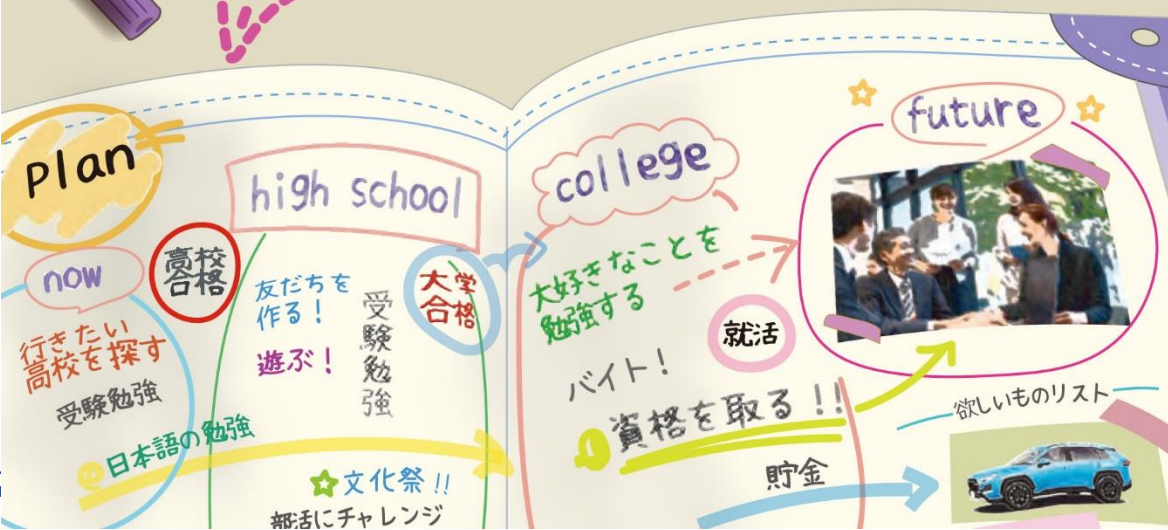 Plan
now
高校
合格
行きたい
高校を探す
受験勉強
日本語の勉強
high school
友だちを
作る!
遊ぶ!
受験勉強
大学
合格
文化祭!!
部活にチャレンジ
college
大好きなことを
勉強する
就活
バイト!
資格を取る!!
貯金
future
欲しいものリスト